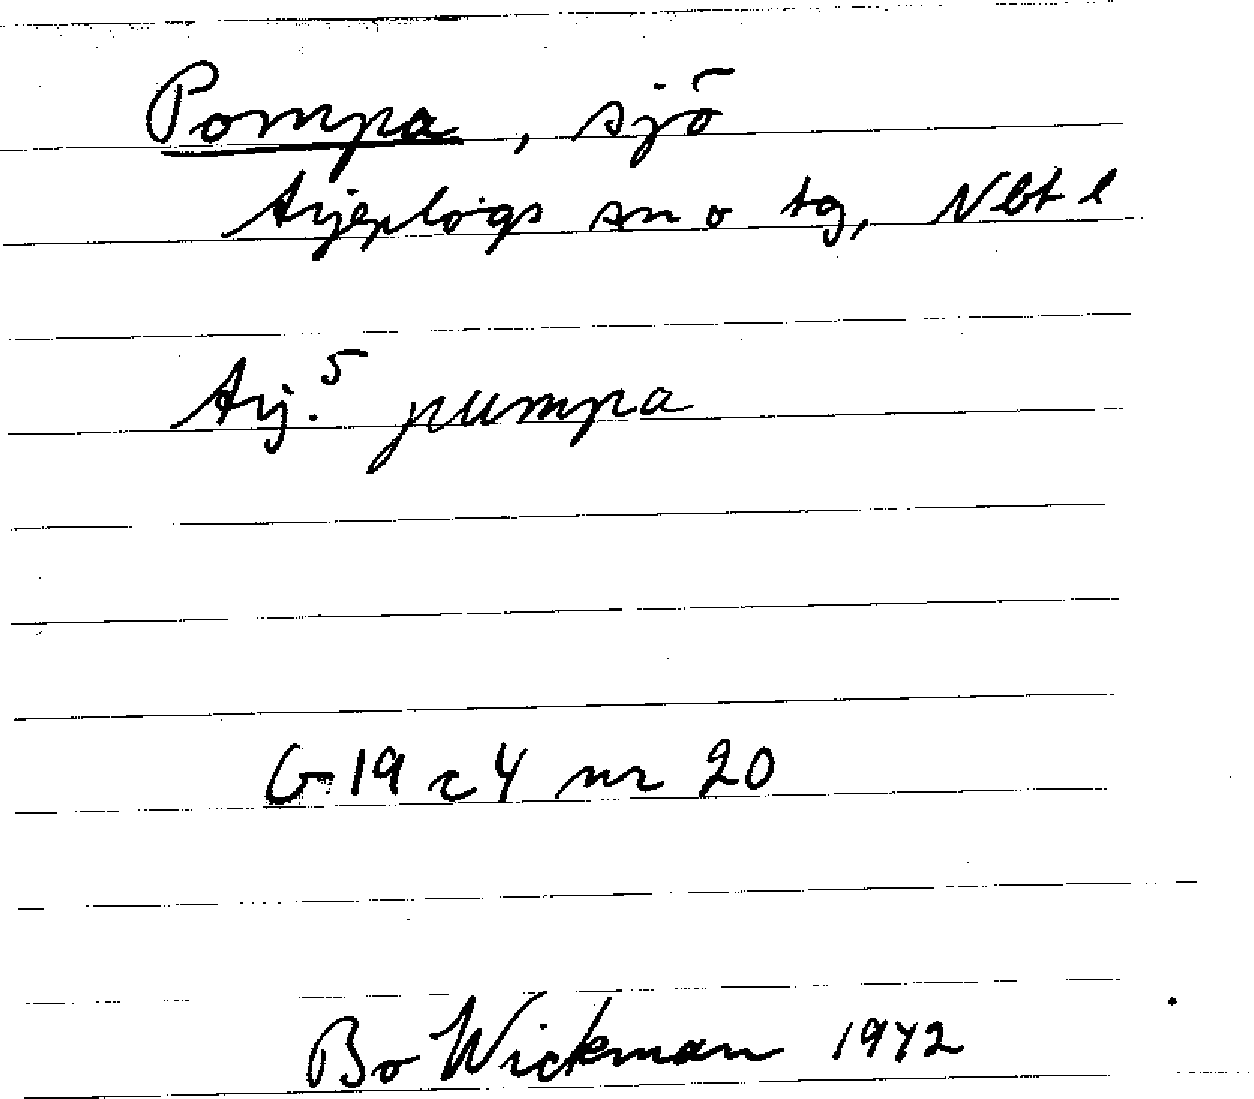 Pompa, sjö
Arjeplogs sn o tg, Nbt l
Arj.5 pumpa
G 19 c 4 nr 20
Bo Wickman 1942